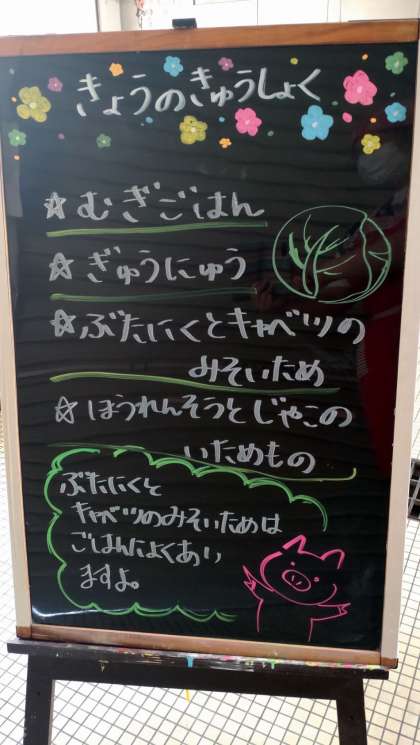 きょうのきゅうしょく
☆むぎごはん
☆ぎゅうにゅう
☆ぶたにくとキャベツの
みそいため
☆ほうれんそうとじゃこの
いためもの
ぶたにくと
キャベツのみそいためは
ごはんによくあい
ますよ。